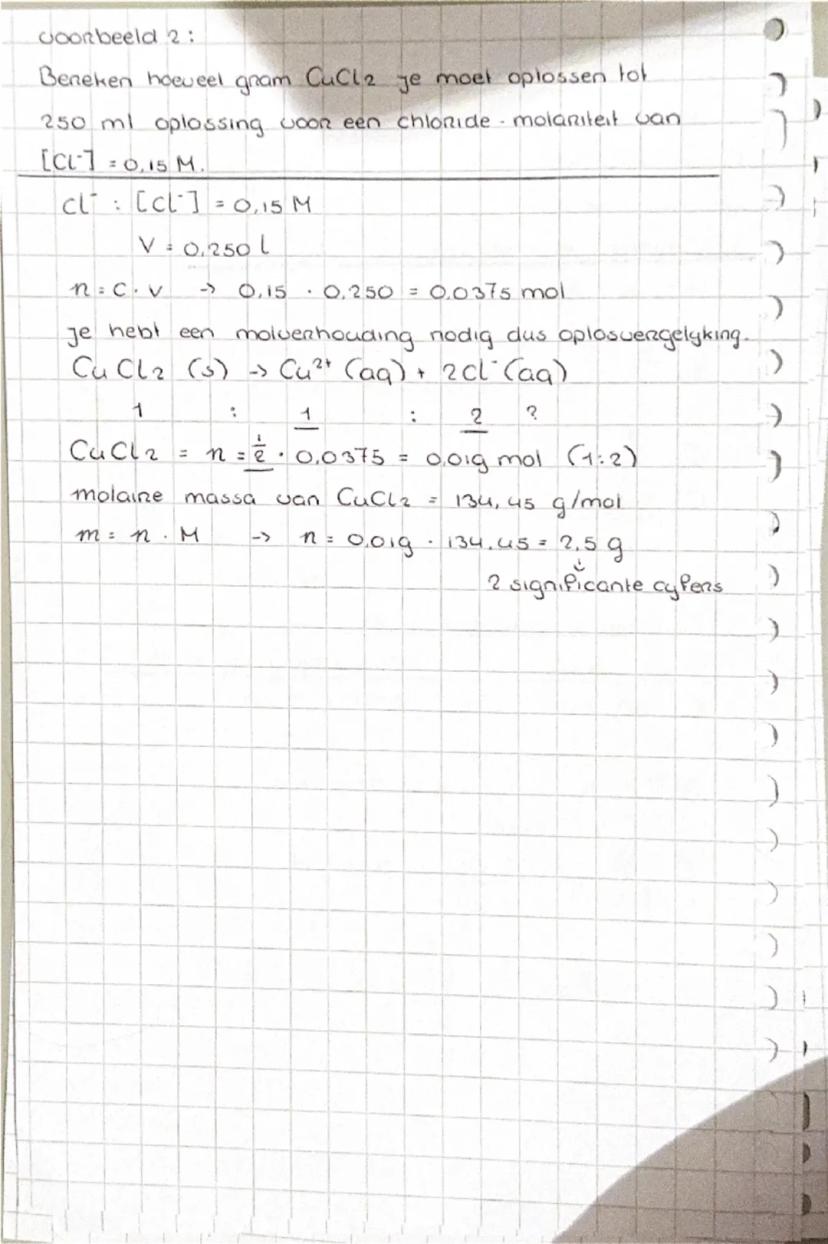 voorbeeld 2:
Bereken hoeveel gram CuCl2 je moet oplossen tot
250 ml oplossing voor een chloride-molariteit van
[Cl⁻] = 0,15 M.
Cl⁻ : [Cl⁻] = 0,15 M
V = 0,250 l
n = C · V -> 0,15 · 0,250 = 0,0375 mol
je hebt een molverhouding nodig dus oplosvergelyking.
CuCl2 (s) -> Cu²⁺ (aq) + 2Cl⁻ (aq)
1 : 1 : 2 ?
CuCl2 = n = 1/2 · 0,0375 = 0,019 mol (1:2)
molaire massa van CuCl2 = 134,45 g/mol
m = n · M -> n = 0,019 · 134,45 = 2,5 g
↓
2 significante cyfers